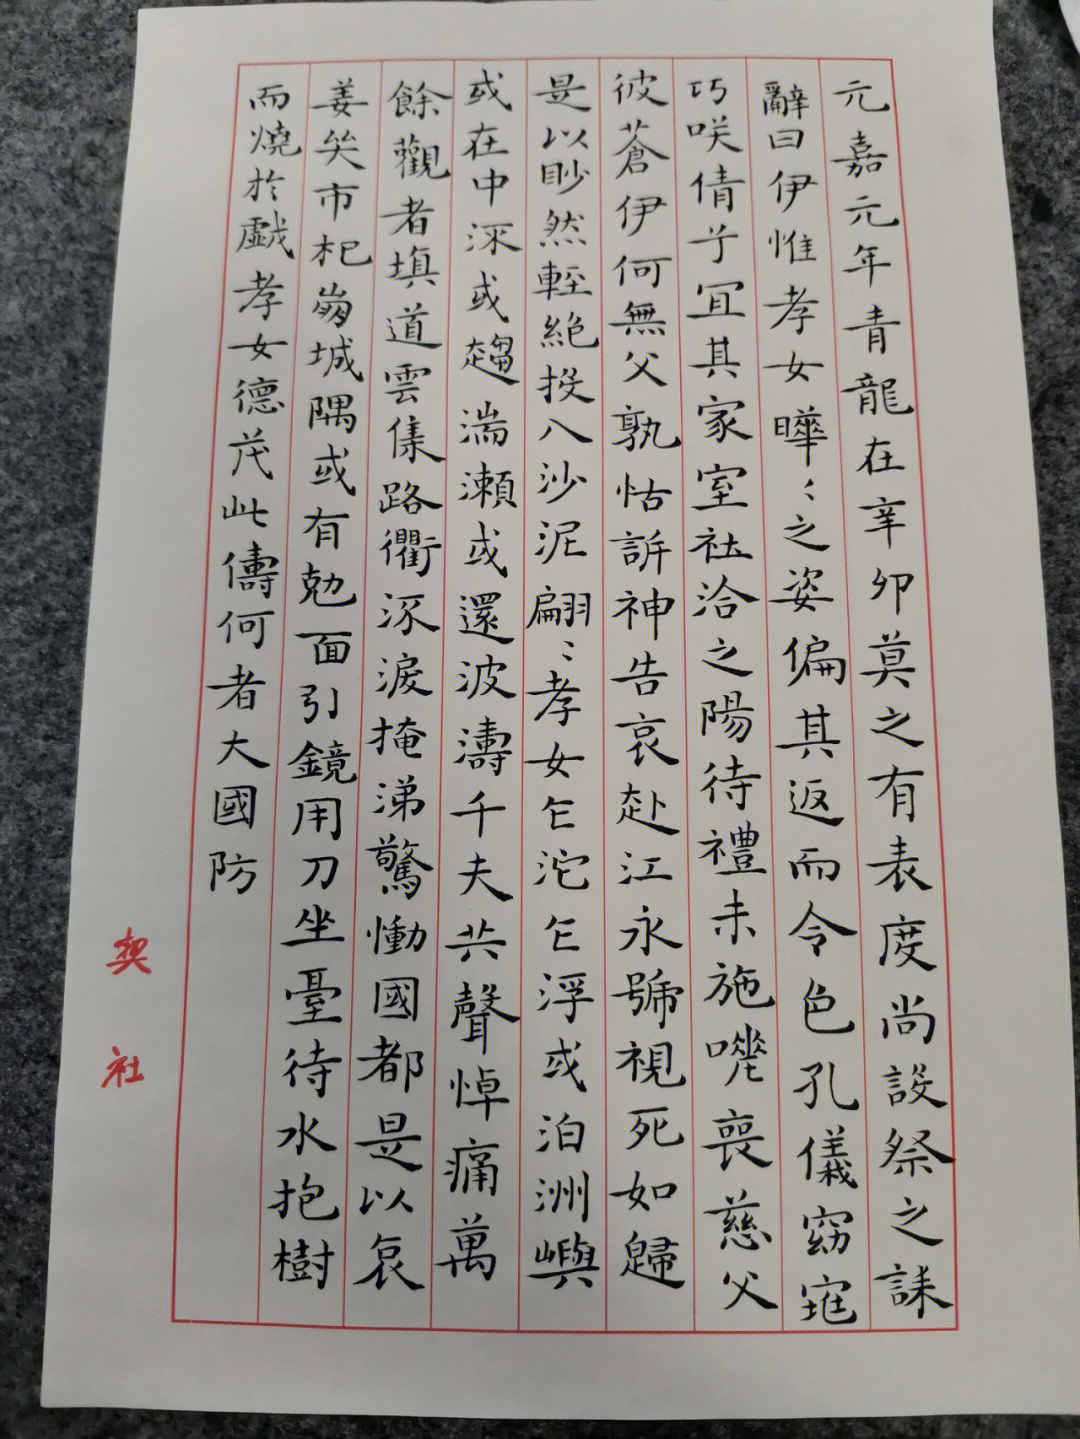 元嘉元年青龍在辛卯莫之有表度尚設祭之誄
辭曰伊惟孝女曄〻之姿偏其返而令色孔儀窈窕
巧咲倩兮宜其家室在洽之陽待禮未施嗟喪慈父
彼蒼伊何無父孰怙訴神告哀赴江永號視死如歸
是以眇然輕絕投入沙泥翩〻孝女乍沱乍浮或泊洲嶼
或在中流或趨湍瀨或還波濤千夫共聲悼痛萬
餘觀者填道雲集路衢流淚掩涕驚慟國都是以哀
姜哭市杞崩城隅或有勉面引鏡用刀坐臺待水抱樹
而燒於戲孝女德茂此儔何者大國防
契社